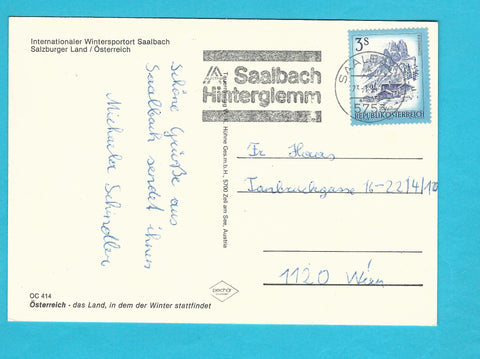 Internationaler Wintersportort Saalbach
Salzburger Land / Österreich
Schöne Grüße aus
Saalbach sendet ihnen
Michaela Schindler
OC 414
Österreich - das Land, in dem der Winter stattfindet
Höhne Ges.m.b.H., 5700 Zell am See, Austria
Saalbach
Hinterglemm
SAALB
5753
3 S
REPUBLIK ÖSTERREICH
Fr Haas
Tanbruckgasse 16-22/4/
1120 Wien